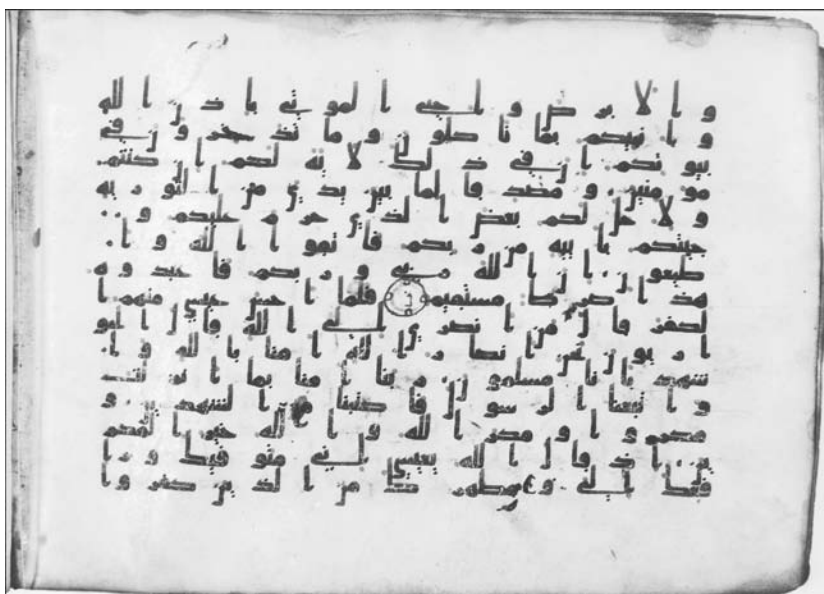 والابرص واحيى الموتى باذن الله
وانبيكم بما تاكلون وما تدخرون في
بيوتكم ان في ذلك لاية لكم ان كنتم
مومنين ومصدقا لما بين يدي من التورية
ولاحل لكم بعض الذي حرم عليكم و
جيتكم باية من ربكم فاتقوا الله وا
طيعون ان الله ربي وربكم فاعبدوه
هذا صرط مستقيم فلما احس عيسى منهم ا
لكفر قال من انصري الى الله قال الحو
اريون نحن انصار الله امنا بالله وا
شهد بانا مسلمون ربنا امنا بما انزلت
واتبعنا الرسول فاكتبنا مع الشهدين و
مكروا ومكر الله والله خير المكر
ين اذ قال الله يعيسى اني متوفيك ورا
فعك الي ومطهرك من الذين كفروا